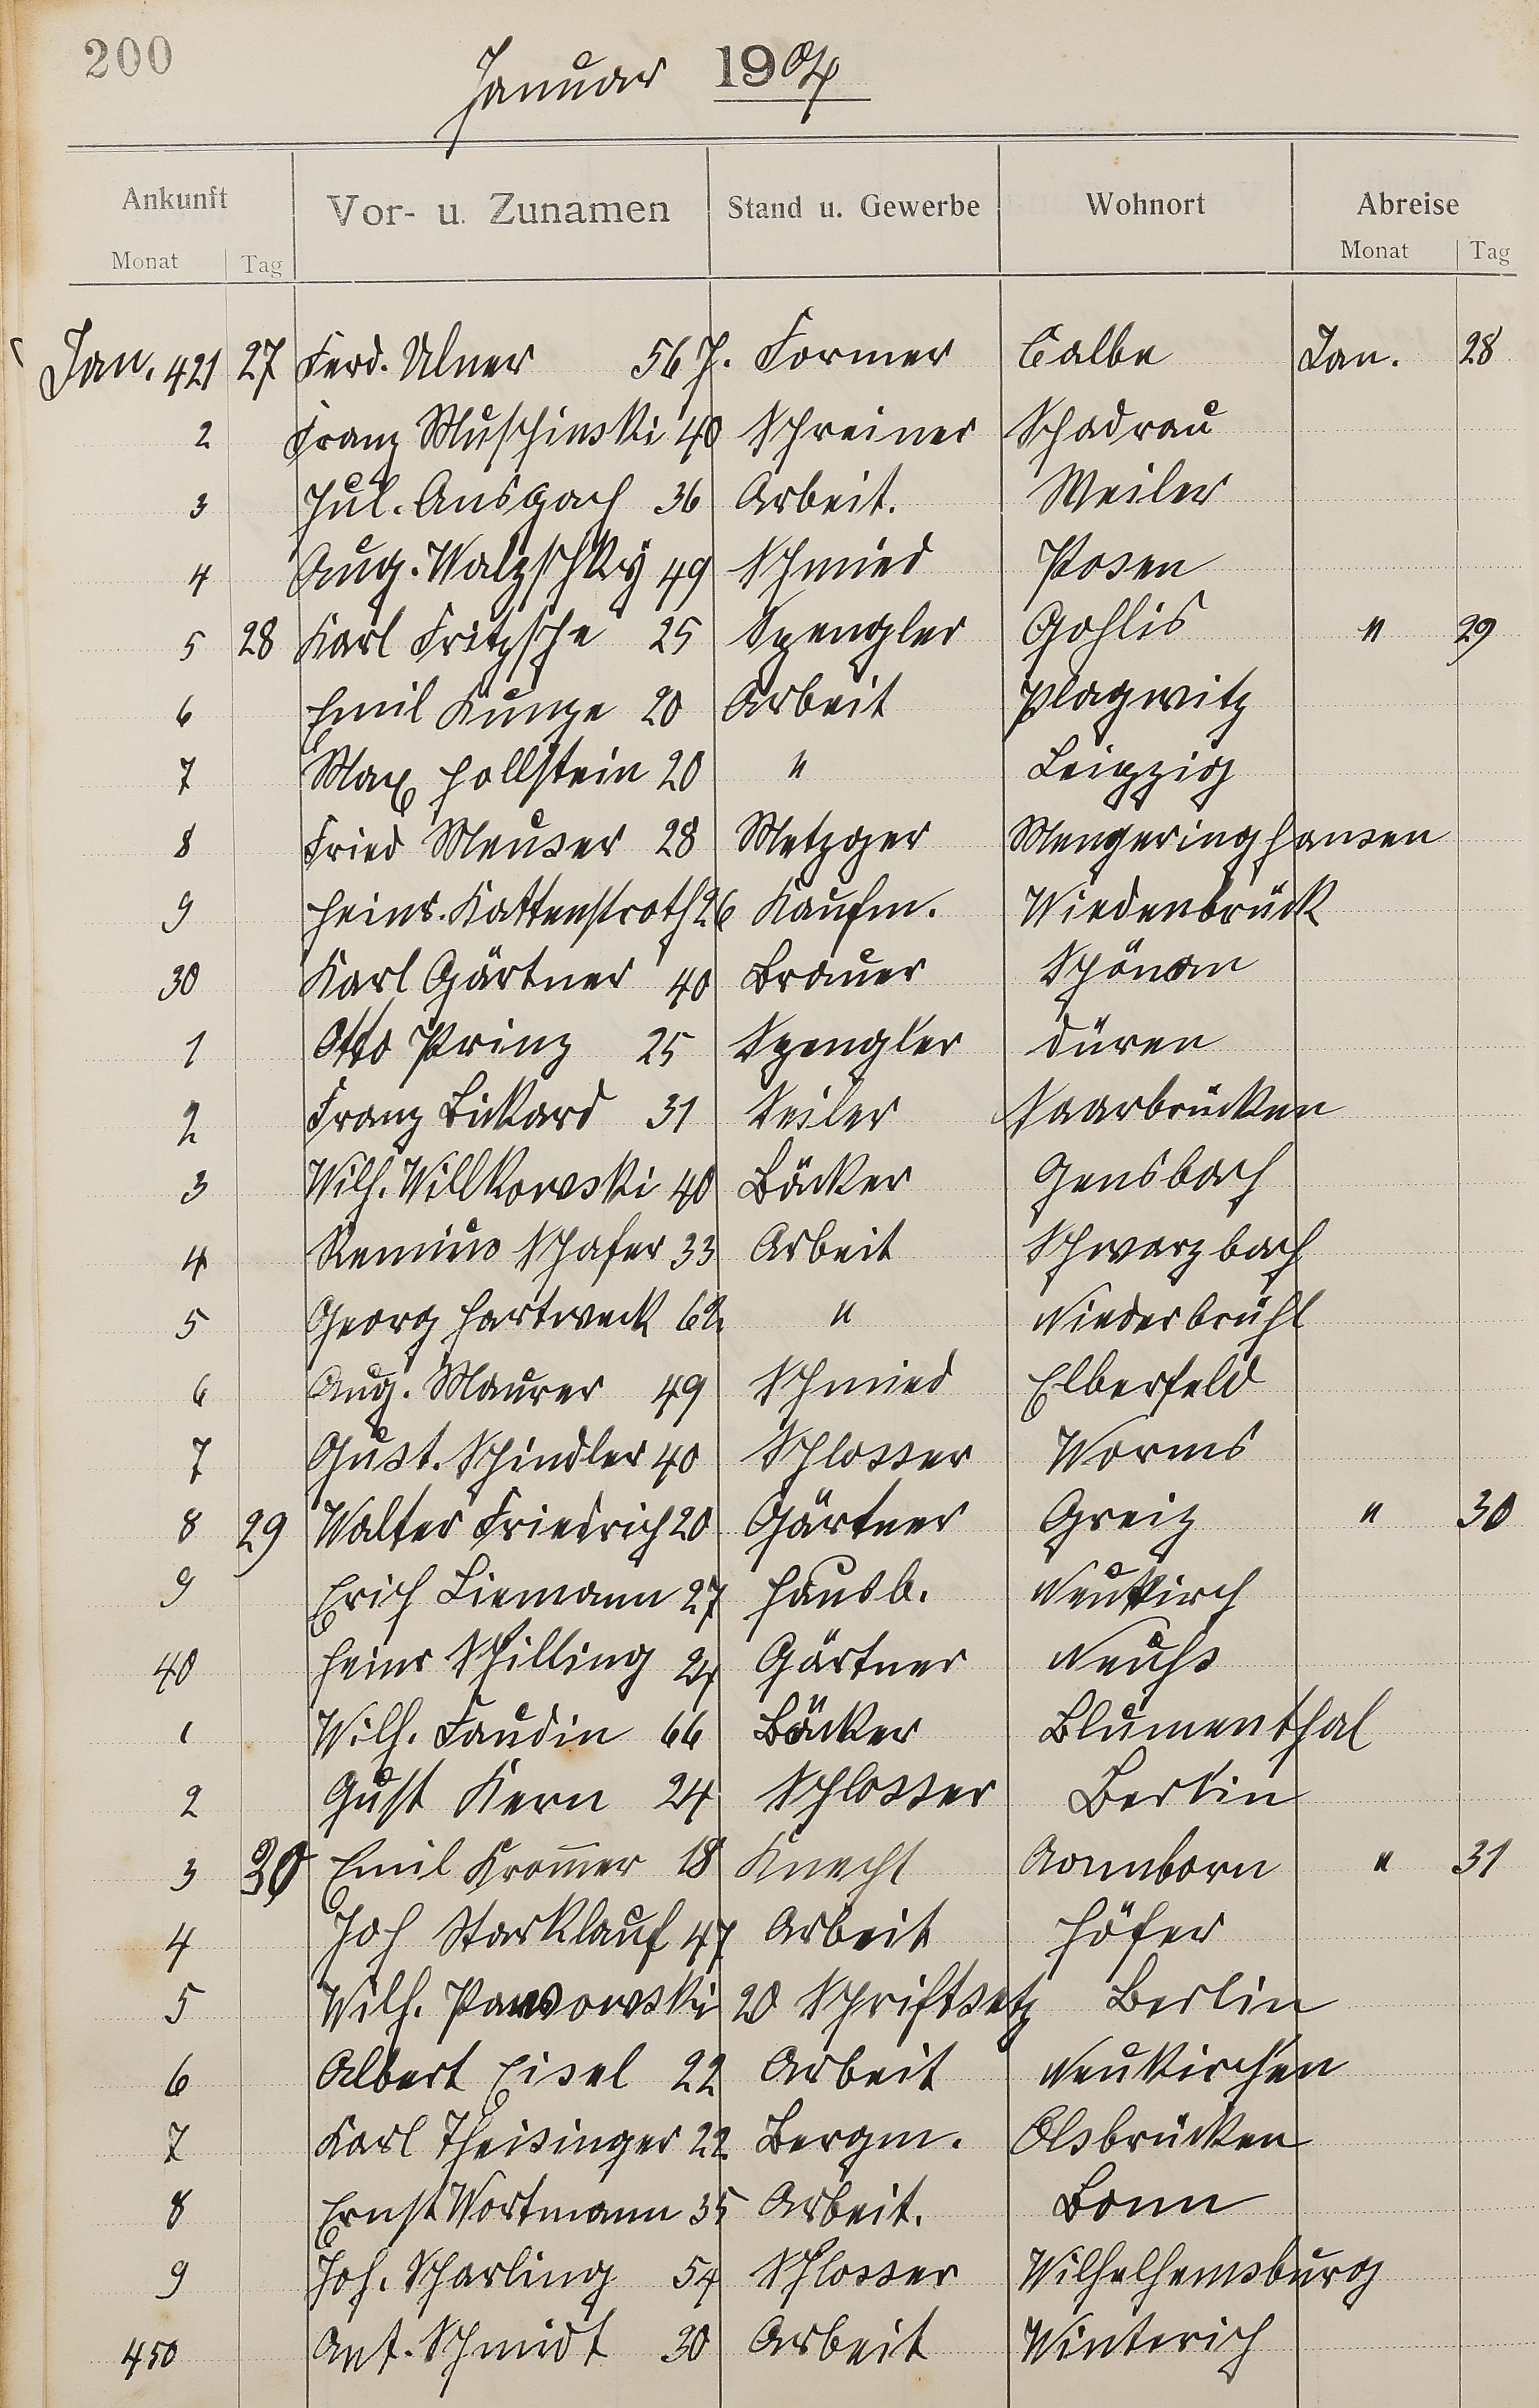 200
Januar 1904
Ankunft Vor- u. Zunamen Stand u. Gewerbe Wohnort Abreise
Monat Tag Monat Tag
Jan. 421 27 Ferd. Ulner 56 J. Former Calbe Jan. 28
2 Franz Muschinski 40 Schreiner Schadrau
3 Jul. Ansbach 36 Arbeit. Weiler
4 Aug. Walzschky 49 Schmied Posen
5 28 Karl Fritzsche 25 Spengler Gohlis " 29
6 Emil Kunze 20 Arbeit Plagwitz
7 Max Hollstein 20 " Leipzig
8 Fried Meuser 28 Metzger Mengeringhausen
9 Heinr. Kattenstroth 26 Kaufm. Wiedenbrück
30 Karl Gärtner 40 Brauer Schönau
1 Otto Prinz 25 Spengler Düren
2 Franz Bickard 31 Seiler Saarbrücken
3 Wilh. Willkowski 40 Bäcker Gensbach
4 Remius Schafer 33 Arbeit Schwarzbach
5 Georg Hartweck 62 " Niederbrühl
6 Aug. Maurer 49 Schmied Elberfeld
7 Gust. Schindler 40 Schlosser Worms
8 29 Walter Friedrich 20 Gärtner Greiz " 30
9 Erich Liemann 27 Hausb. Neukirch
40 Heinr Schilling 24 Gärtner Neuhs
1 Wilh. Faudin 66 Bäcker Blumenthal
2 Gust Kern 24 Schlosser Berlin
3 30 Emil Kromer 18 Knecht Sonnborn " 31
4 Joh Starklauf 47 Arbeit Höfer
5 Wilh. 20 Schriftsetz Berlin
6 Albert Eisel 22 Arbeit Neukirchen
7 Karl Theisinger 22 Bergm. Olsbrücken
8 Ernst Wortmann 35 Arbeit. Bonn
9 Joh. Scharling 54 Schlosser Wilhelhemsburg
450 Ant. Schmidt 30 Arbeit Winterich